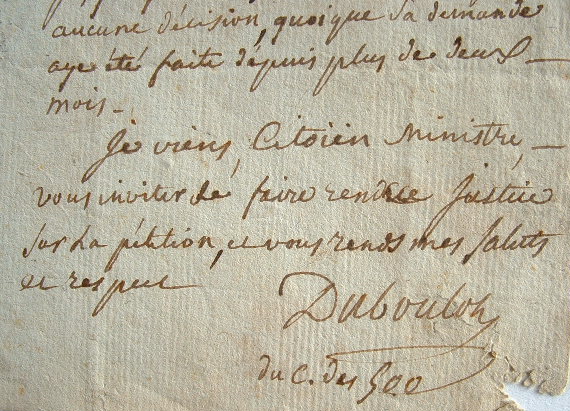 aucune décision, quoique Sa demande
aye été faite depuis plus de deux
mois.
Je viens, Citoien Ministre,
vous inviter de faire rendre Justice
Sur La pétition, et vous rends mes Saluts
et respect
Dubouloz
du C. des 500